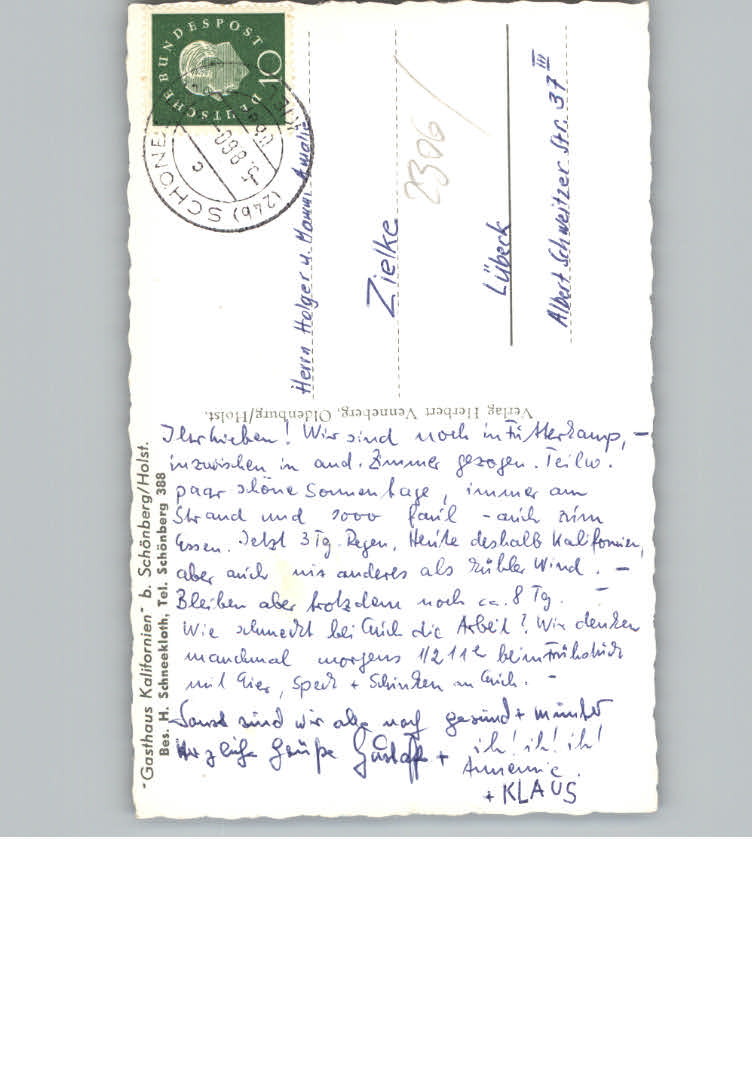 DEUTSCHE BUNDESPOST
10
(24b) SCHÖNE
c
-5.8.60
Herrn Holger u. Mammi Amalie
Zielke
Lübeck
Albert Schweitzer Str. 37 III
2306/
Verlag Herbert Venneberg, Oldenburg/Holst.
"Gasthaus Kalifornien" b. Schönberg/Holst.
Bes. H. Schneekloth, Tel. Schönberg 388
Ihr Lieben! Wir sind noch in Futterkamp, –
inzwischen in and. Zimmer gezogen. Teilw.
paar schöne Sonnentage, immer am
Strand und sooo faul – auch zum
Essen. Jetzt 3 Tg. Regen. Heute deshalb Kalifornien,
aber auch nix anderes als kühler Wind. –
Bleiben aber trotzdem noch ca. 8 Tg. –
Wie schmeckt bei Euch die Arbeit? Wir denken
manchmal morgens 1/2 11h beim Frühstück
mit Eier, Speck + Schinken an Euch. –
Sonst sind wir alle noch gesund + munter
Herzliche Grüße Gustaff + ih! ih! ih!
Annemie.
+ KLAUS